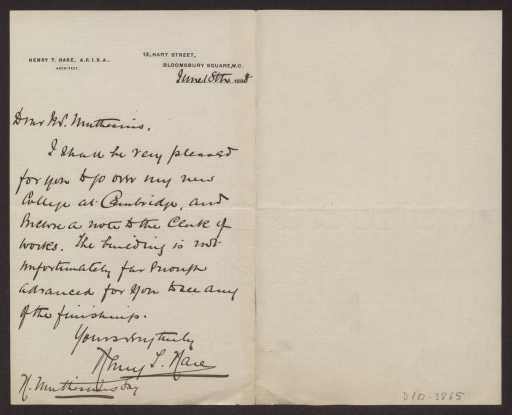 HENRY T. HARE, A.R.I.B.A.,
ARCHITECT.
13, HART STREET,
BLOOMSBURY SQUARE, W.C.
June 18th 1898
Dear Mr. Muthesius,
I shall be very pleased
for you to go over my new
College at Cambridge, and
enclose a note to the Clerk of
Works. The building is not
unfortunately far enough
advanced for you to see any
of the finishings.
Yours very truly
Henry T. Hare
H. Muthesius Esq
D10-3865